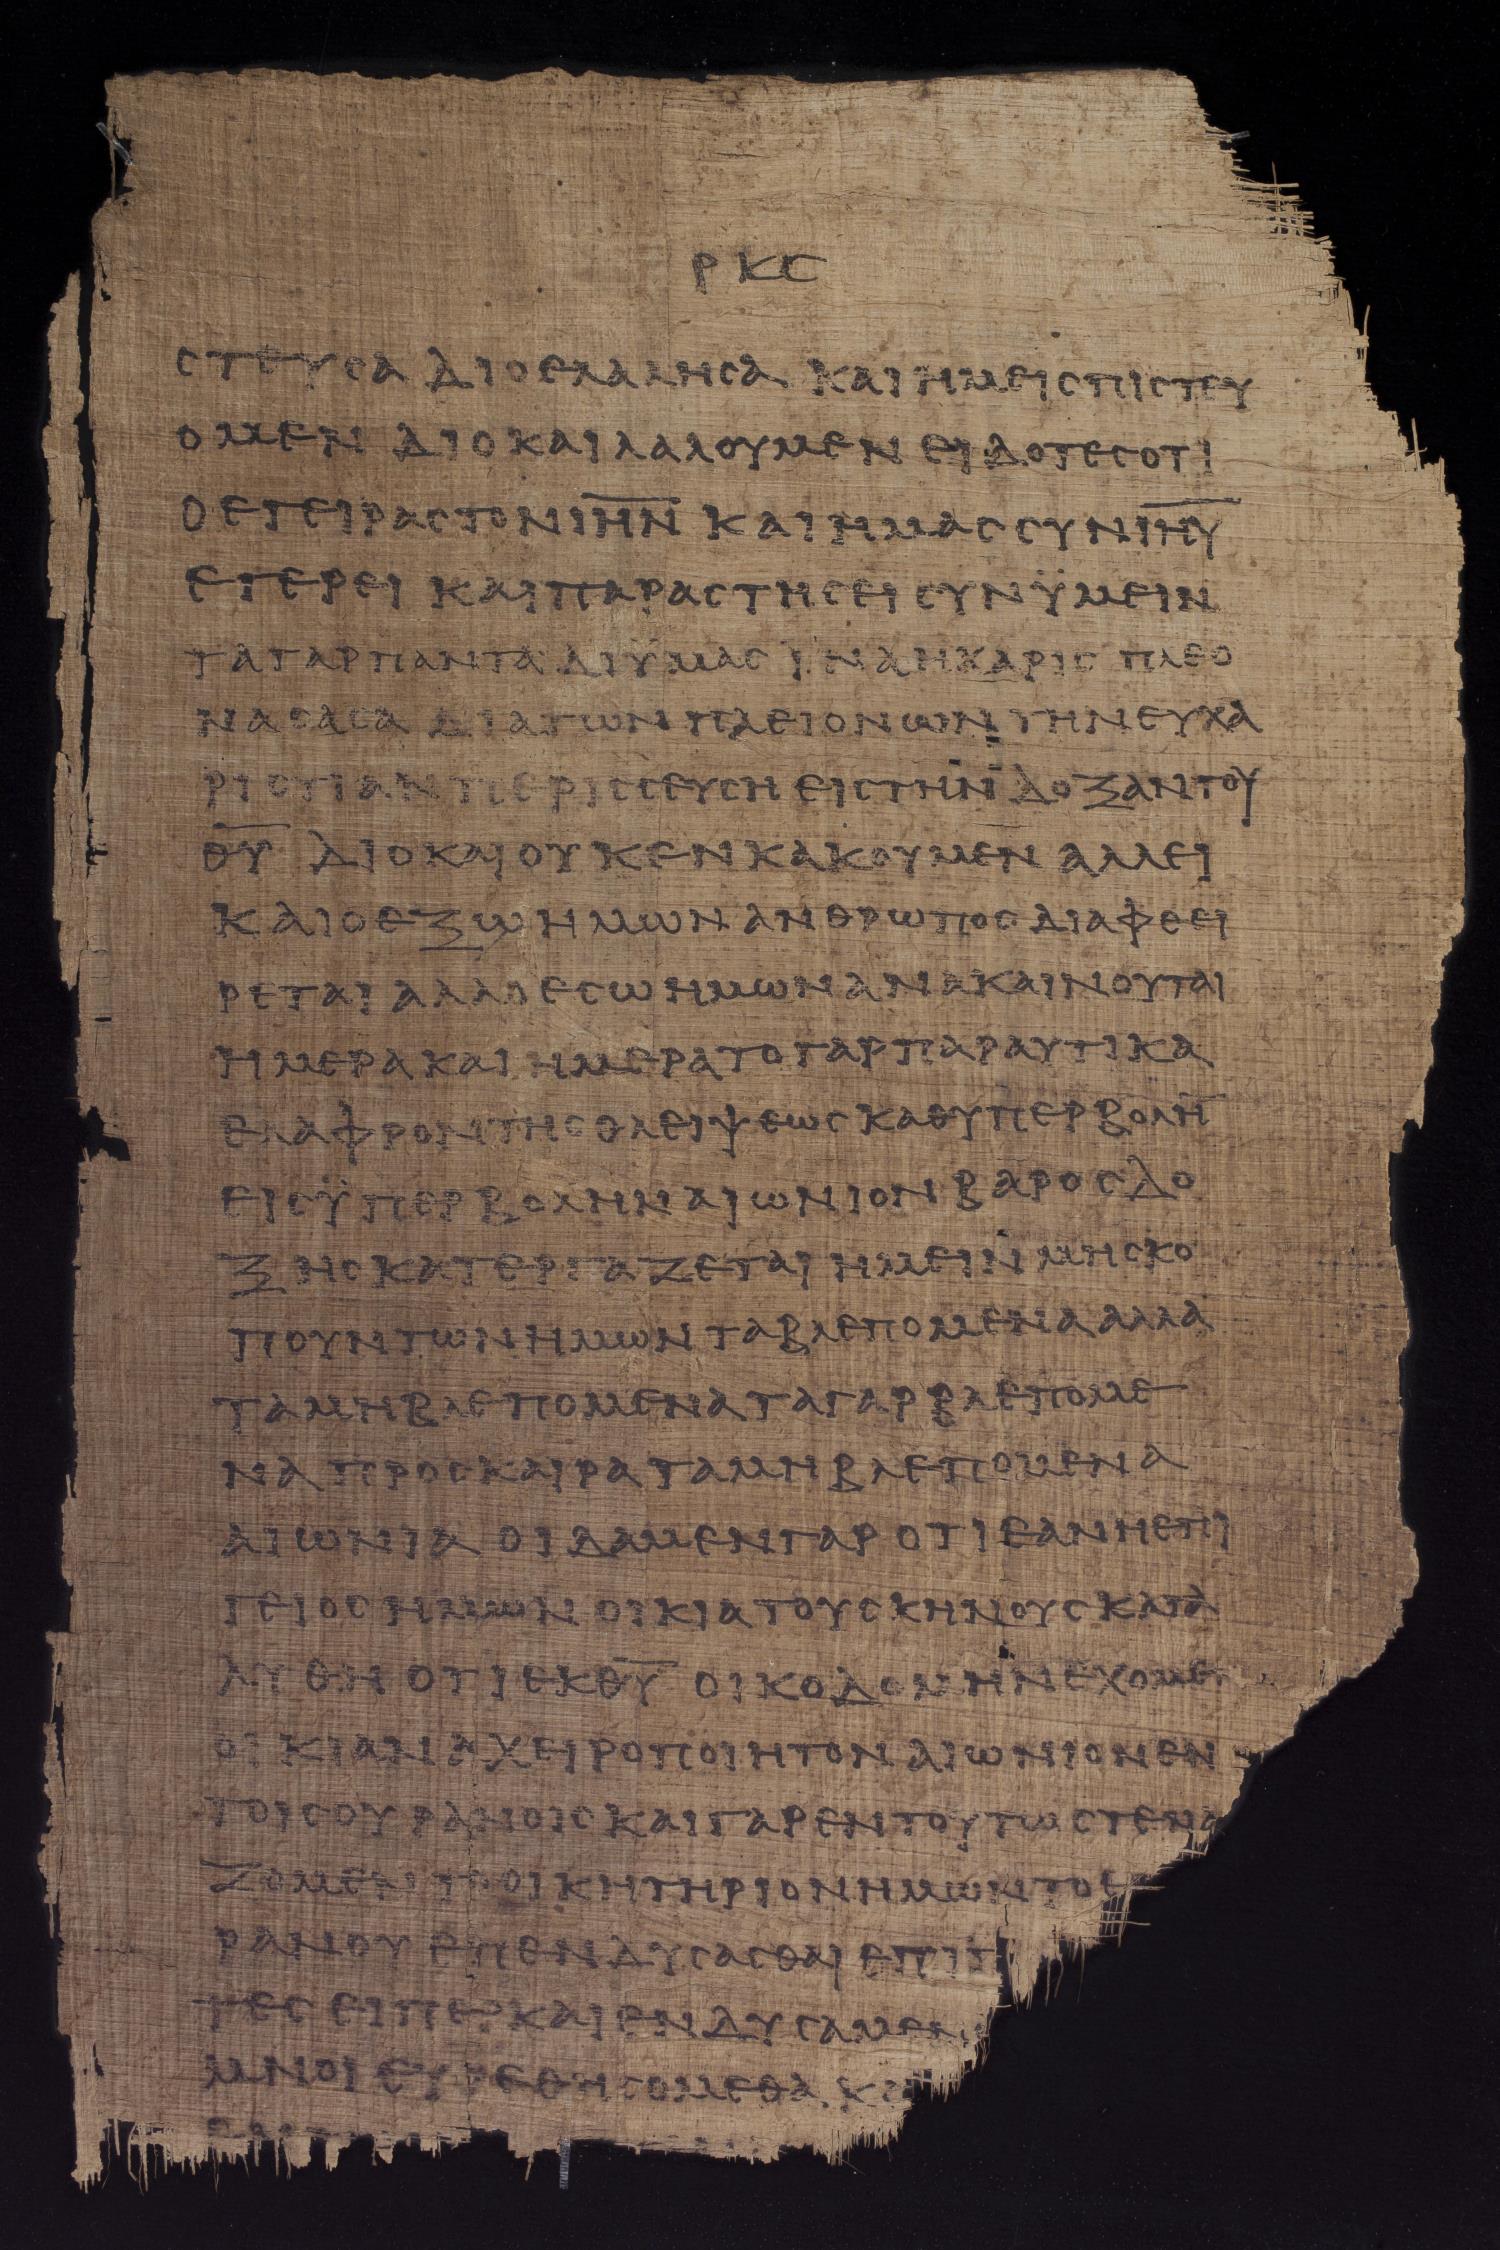 ΡΚϚ
ϹΤΕΥϹΑ ΔΙΟΕΛΑΛΗϹΑ ΚΑΙΗΜΕΙϹΠΙϹΤΕΥ
ΟΜΕΝ ΔΙΟΚΑΙΛΑΛΟΥΜΕΝ ΕΙΔΟΤΕϹΟΤΙ
ΟΕΓΕΙΡΑϹΤΟΝΙ̅Η̅Ν̅ ΚΑΙΗΜΑϹϹΥΝΙ̅Η̅Υ̅
ΕΓΕΡΕΙ ΚΑΙΠΑΡΑϹΤΗϹΕΙϹΥΝΫΜΕΙΝ
ΤΑΓΑΡΠΑΝΤΑ ΔΙΫΜΑϹ ΙΝΑΗΧΑΡΙϹ ΠΛΕΟ
ΝΑϹΑϹΑ ΔΙΑΤΩΝΠΛΕΙΟΝΩΝΤΗΝΕΥΧΑ
ΡΙϹΤΙΑΝΠΕΡΙϹϹΕΥϹΗ ΕΙϹΤΗΝ ΔΟΞΑΝΤΟΥ
Θ̅Υ̅ ΔΙΟΚΑΙΟΥΚΕΝΚΑΚΟΥΜΕΝ ΑΛΛΕΙ
ΚΑΙΟΕΞΩΗΜΩΝΑΝΘΡΩΠΟϹΔΙΑΦΘΕΙ
ΡΕΤΑΙΑΛΛΟΕϹΩΗΜΩΝΑΝΑΚΑΙΝΟΥΤΑΙ
ΗΜΕΡΑΚΑΙΗΜΕΡΑΤΟΓΑΡΠΑΡΑΥΤΙΚΑ
ΕΛΑΦΡΟΝΤΗϹΘΛΕΙΨΕΩϹΚΑΘΥΠΕΡΒΟΛΗ̅
ΕΙϹΫΠΕΡΒΟΛΗΝΑΙΩΝΙΟΝΒΑΡΟϹΔΟ
ΞΗϹΚΑΤΕΡΓΑΖΕΤΑΙΗΜΕΙΝΜΗϹΚΟ
ΠΟΥΝΤΩΝΗΜΩΝΤΑΒΛΕΠΟΜΕΝΑΑΛΛΑ
ΤΑΜΗΒΛΕΠΟΜΕΝΑΤΑΓΑΡΒΛΕΠΟΜΕ
ΝΑΠΡΟϹΚΑΙΡΑΤΑΜΗΒΛΕΠΟΜΕΝΑ
ΑΙΩΝΙΑ ΟΙΔΑΜΕΝΓΑΡΟΤΙΕΑΝΗΕΠΙ
ΓΕΙΟϹΗΜΩΝΟΙΚΙΑΤΟΥϹΚΗΝΟΥϹΚΑΤΑ
ΛΥΘΗΟΤΙΕΚΘ̅Υ̅ ΟΙΚΟΔΟΜΗΝΕΧΟΜΕ
ΟΙΚΙΑΝΑΧΕΙΡΟΠΟΙΗΤΟΝΑΙΩΝΙΟΝΕΝ
ΤΟΙϹΟΥΡΑΝΟΙϹΚΑΙΓΑΡΕΝΤΟΥΤΩϹΤΕΝΑ
ΖΟΜΕΝΤΟΟΙΚΗΤΗΡΙΟΝΗΜΩΝΤΟΕ
ΡΑΝΟΥΕΠΕΝΔΥϹΑϹΘΑΙΕΠΙΠ
ΤΕϹΕΙΠΕΡΚΑΙΕΝΔΥϹΑΜΕΝ
ΜΝΟΙΕΥΡΕΘΗϹΟΜΕΘΑΚΑ